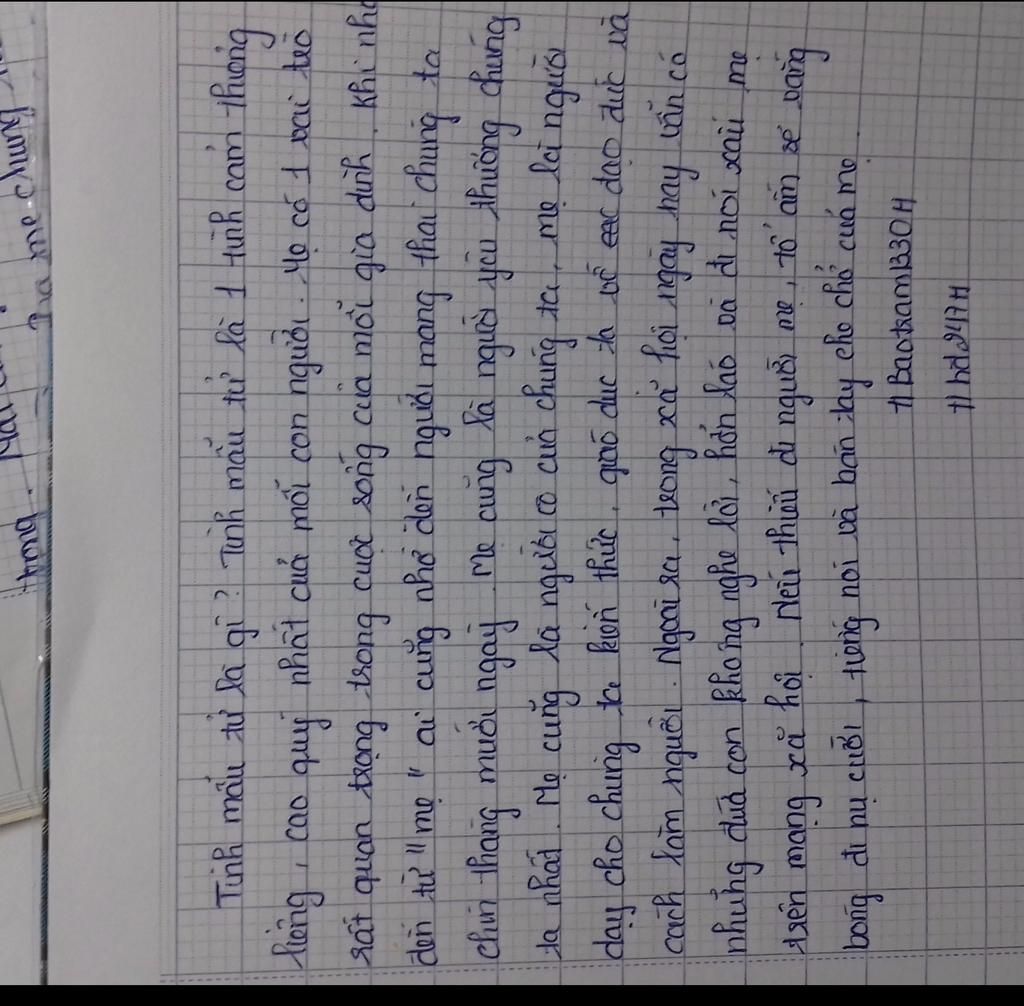 trong.
Ba mẹ chung
Tình mẫu tử là gì? Tình mẫu tử là 1 tình cảm thiêng
liêng, cao quý nhất của mỗi con người. Mẹ có 1 vai trò
rất quan trọng trong cuộc sống của mỗi gia đình. Khi nhắc
đến từ "mẹ" ai cũng nhớ đến người mang thai chúng ta
chín tháng mười ngày. Mẹ cũng là người yêu thương chúng
ta nhất. Mẹ cũng là người cô của chúng ta, mẹ là người
dạy cho chúng ta kiến thức, giáo dục ta về các đạo đức và
cách làm người. Ngoài ra, trong xã hội ngày nay vẫn có
những đứa con không nghe lời, hỗn láo và đi nói xấu mẹ
trên mạng xã hội. Nếu thiếu đi người mẹ, tổ ấm sẽ vắng
bóng đi nụ cười, tiếng nói và bàn tay che chở của mẹ.
#Baotram1330H
#hd247H